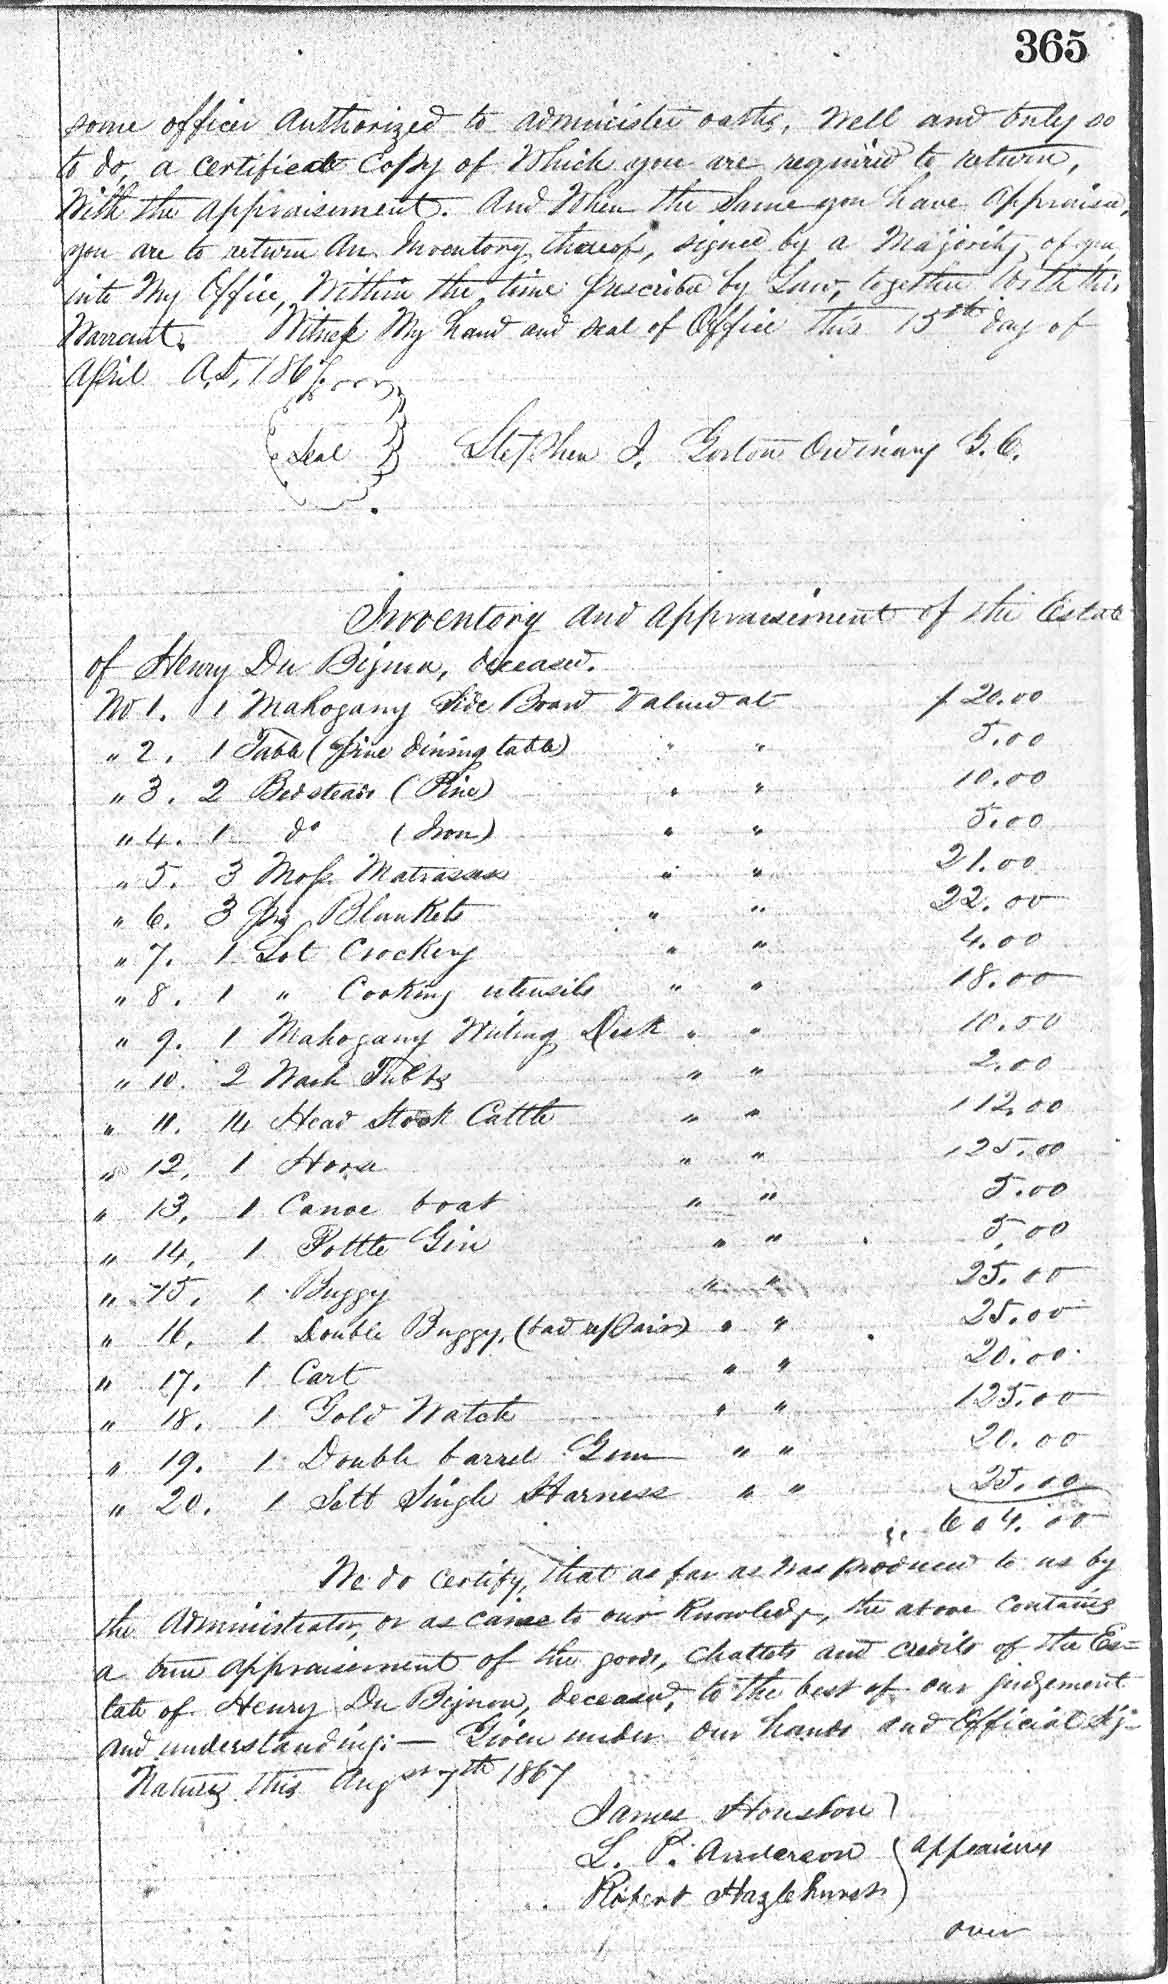 365
some officer authorized to administer oaths, well and truly so
to do, a certified copy of which you are required to return,
with the appraisement. And when the same you have appraised,
you are to return an Inventory thereof, signed by a majority of you
into my Office, within the time prescribed by Law, together with this
Warrant. Witness my hand and seal of Office this 15th day of
April A.D. 1867.
Seal
Stephen J. Gorton Ordinary G. C.
Inventory and appraisement of the Estate
of Henry Du Bignon, deceased.
No 1. 1 Mahogany Side Board Valued at $ 20.00
" 2. 1 Table (pine dining table) " " 5.00
" 3. 2 Bedsteads (Pine) " " 10.00
" 4. 1 do (Iron) " " 5.00
" 5. 3 Moss Matrasses " " 21.00
" 6. 3 prs Blankets " " 22.00
" 7. 1 Lot Crockery " " 4.00
" 8. 1 " Cooking utensils " " 18.00
" 9. 1 Mahogany Writing Desk " " 10.00
" 10. 2 Wash Tubs " " 2.00
" 11. 14 Head Stock Cattle " " 112.00
" 12. 1 Horse " " 125.00
" 13. 1 Canoe boat " " 5.00
" 14. 1 Pottle Gin " " 5.00
" 15. 1 Buggy " " 25.00
" 16. 1 Double Buggy, (bad repair) " " 25.00
" 17. 1 Cart " " 20.00
" 18. 1 Gold Watch " " 125.00
" 19. 1 Double barrel Gun " " 20.00
" 20. 1 Sett Single Harness " " 25.00
" 604.00
We do certify, that as far as was produced to us by
the Administrator, or as came to our knowledge, the above contains
a true appraisement of the goods, chattels and credits of the Es=
tate of Henry Du Bignon, deceased, to the best of our judgement
and understanding:— Given under our hands and Official Sig=
natures this Augst 7th 1867
James Houston
L. P. Anderson appraisers
Robert Hazlehurst
over